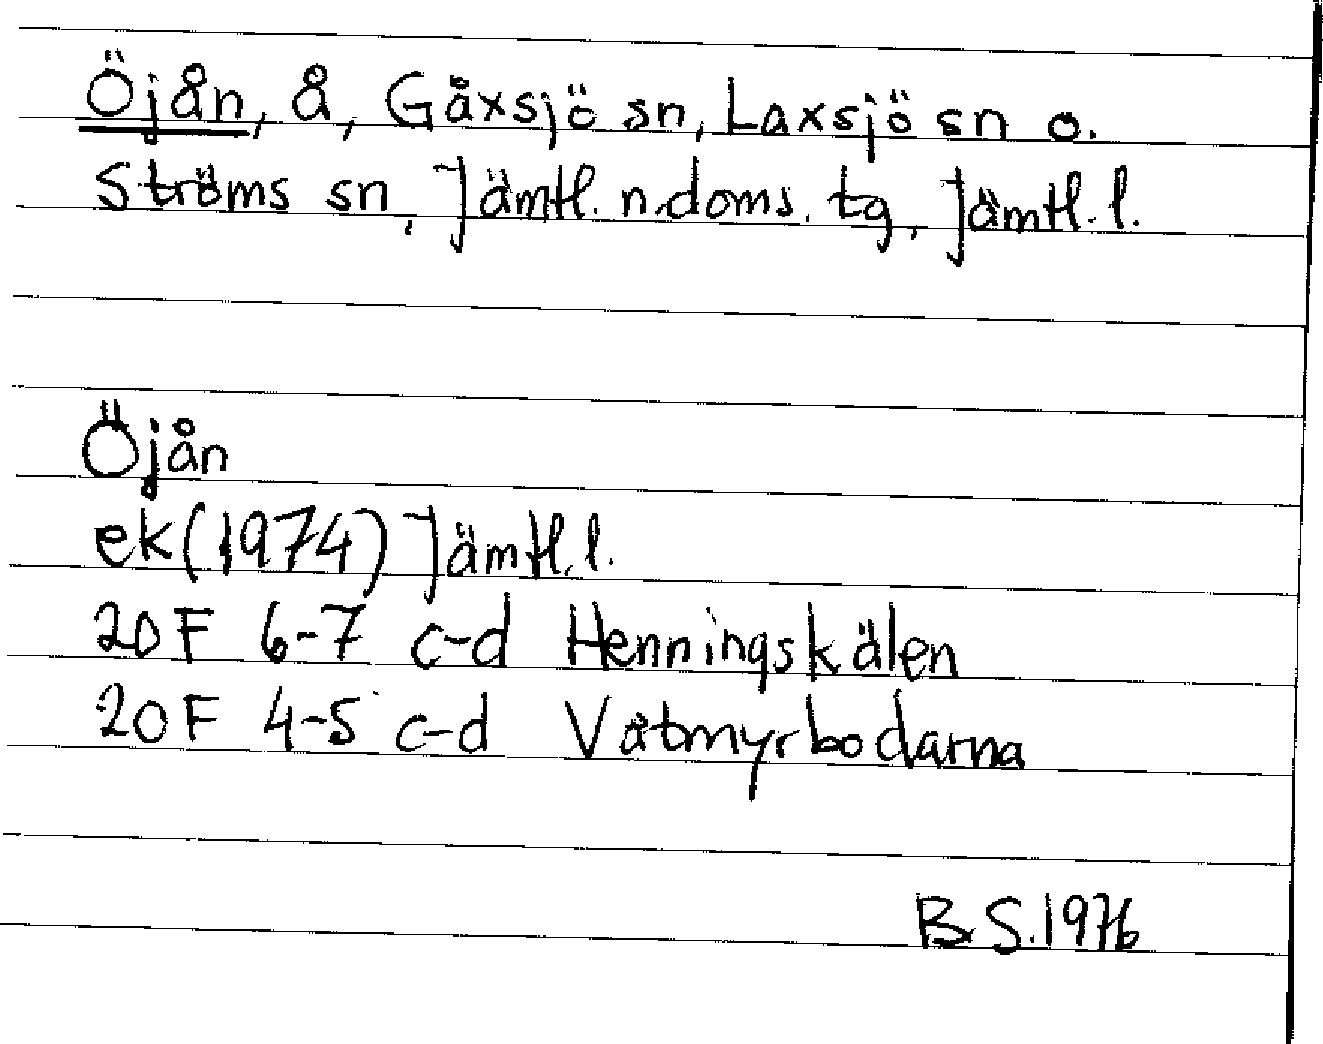 Öjån, å, Gåxsjö sn, Laxsjö sn o.
Ströms sn, Jämtl. n. doms. tg, Jämtl. l.
Öjån
ek (1974) Jämtl. l.
20F 6-7 c-d Henningskälen
20F 4-5 c-d Våtmyrbodarna
B.S. 1976